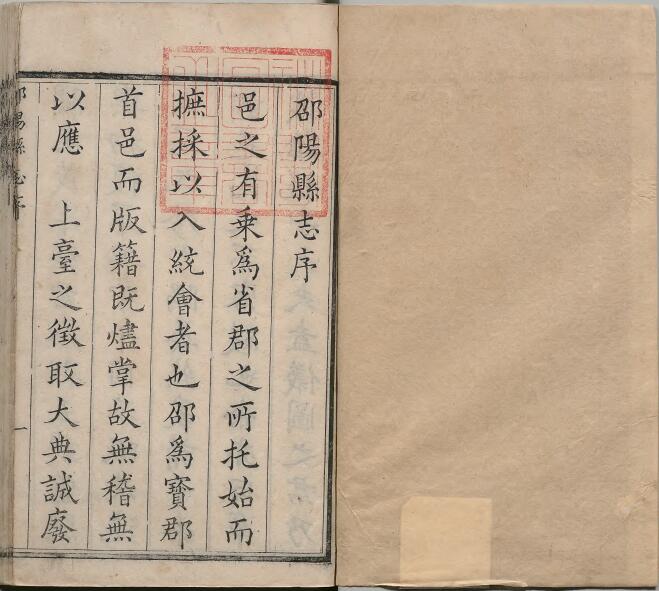 邵陽縣志序
邑之有乗爲省郡之所托始而
摭採以入統會者也邵爲寳郡
首邑而版籍既燼掌故無稽無
以應　上臺之徴取大典誠廢
邵陽縣志序
一